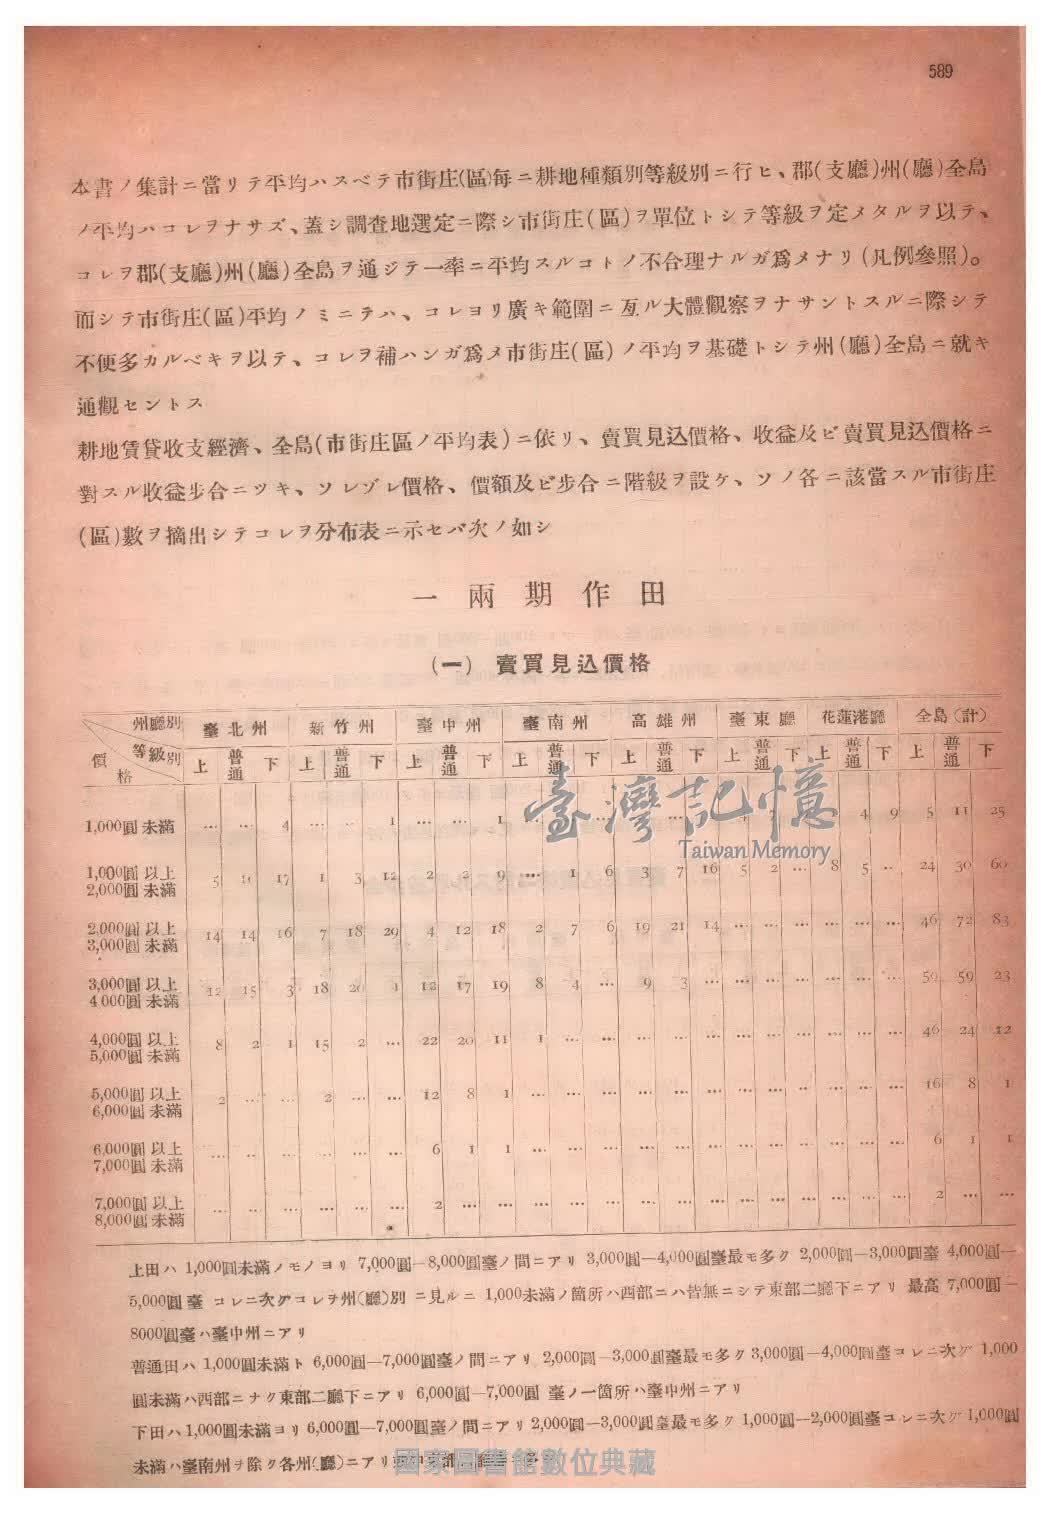 589
本書ノ集計ニ當リテ平均ハスベテ市街庄(區)每ニ耕地種類別等級別ニ行ヒ、郡(支廳)州(廳)全島
ノ平均ハコレヲナサズ、蓋シ調査地選定ニ際シ市街庄(區)ヲ單位トシテ等級ヲ定メタルヲ以テ、
コレヲ郡(支廳)州(廳)全島ヲ通ジテ一率ニ平均スルコトノ不合理ナルガ爲メナリ(凡例參照)。
而シテ市街庄(區)平均ノミニテハ、コレヨリ廣キ範圍ニ亙ル大體觀察ヲナサントスルニ際シテ
不便多カルベキヲ以テ、コレヲ補ハンガ爲メ市街庄(區)ノ平均ヲ基礎トシテ州(廳)全島ニ就キ
通觀セントス
耕地賃貸收支經濟、全島(市街庄區ノ平均表)ニ依リ、賣買見込價格、收益及ビ賣買見込價格ニ
對スル收益步合ニツキ、ソレゾレ價格、價額及ビ步合ニ階級ヲ設ケ、ソノ各ニ該當スル市街庄
(區)數ヲ摘出シテコレヲ分布表ニ示セバ次ノ如シ
一兩期作田
(一) 賣買見込價格
州廳別 臺北州 新竹州 臺中州 臺南州 高雄州 臺東廳 花蓮港廳 全島(計)
等級別 上 普通 下 上 普通 下 上 普通 下 上 普通 下 上 普通 下 上 普通 下 上 普通 下 上 普通 下
價格
1,000圓未滿 … … 4 … … 1 … … 1 4 9 5 11 25
1,000圓以上 2,000圓未滿 5 17 1 3 12 2 2 9 … 1 6 3 7 16 5 2 … 8 5 … 24 30 60
2,000圓以上 3,000圓未滿 14 14 16 7 18 29 4 12 18 2 7 6 19 21 14 … … … … … … 46 72 83
3,000圓以上 4,000圓未滿 12 15 3 18 20 1 12 17 19 8 4 … 9 3 … … … … … … … 59 59 23
4,000圓以上 5,000圓未滿 8 2 1 15 2 … 22 20 11 1 … … … … … … … … … … … 46 24 12
5,000圓以上 6,000圓未滿 2 … … 2 … … 12 8 1 … … … … … … … … … … … … 16 8 1
6,000圓以上 7,000圓未滿 … … … … … … 6 1 1 … … … … … … … … … … … … 6 1 1
7,000圓以上 8,000圓未滿 … … … … … … 2 … … … … … … … … … … … … … … 2 … …
上田ハ 1,000圓未滿ノモノヨリ 7,000圓—8,000圓臺ノ間ニアリ 3,000圓—4,000圓臺最モ多ク 2,000圓—3,000圓臺 4,000圓—
5,000圓臺 コレニ次グコレヲ州(廳)別ニ見ルニ 1,000未滿ノ箇所ハ西部ニハ皆無ニシテ東部二廳下ニアリ 最高 7,000圓—
8000圓臺ハ臺中州ニアリ
普通田ハ 1,000圓未滿ト 6,000圓—7,000圓臺ノ間ニアリ 2,000圓—3,000圓臺最モ多ク 3,000圓—4,000圓臺コレニ次グ 1,000
圓未滿ハ西部ニナク東部二廳下ニアリ 6,000圓—7,000圓 臺ノ一箇所ハ臺中州ニアリ
下田ハ 1,000圓未滿ヨリ 6,000圓—7,000圓臺ノ間ニアリ 2,000圓—3,000圓臺最モ多ク 1,000圓—2,000圓臺コレニ次グ 1,000圓
未滿ハ臺南州ヲ除ク各州(廳)ニアリ
臺灣記憶
Taiwan Memory
國家圖書館數位典藏